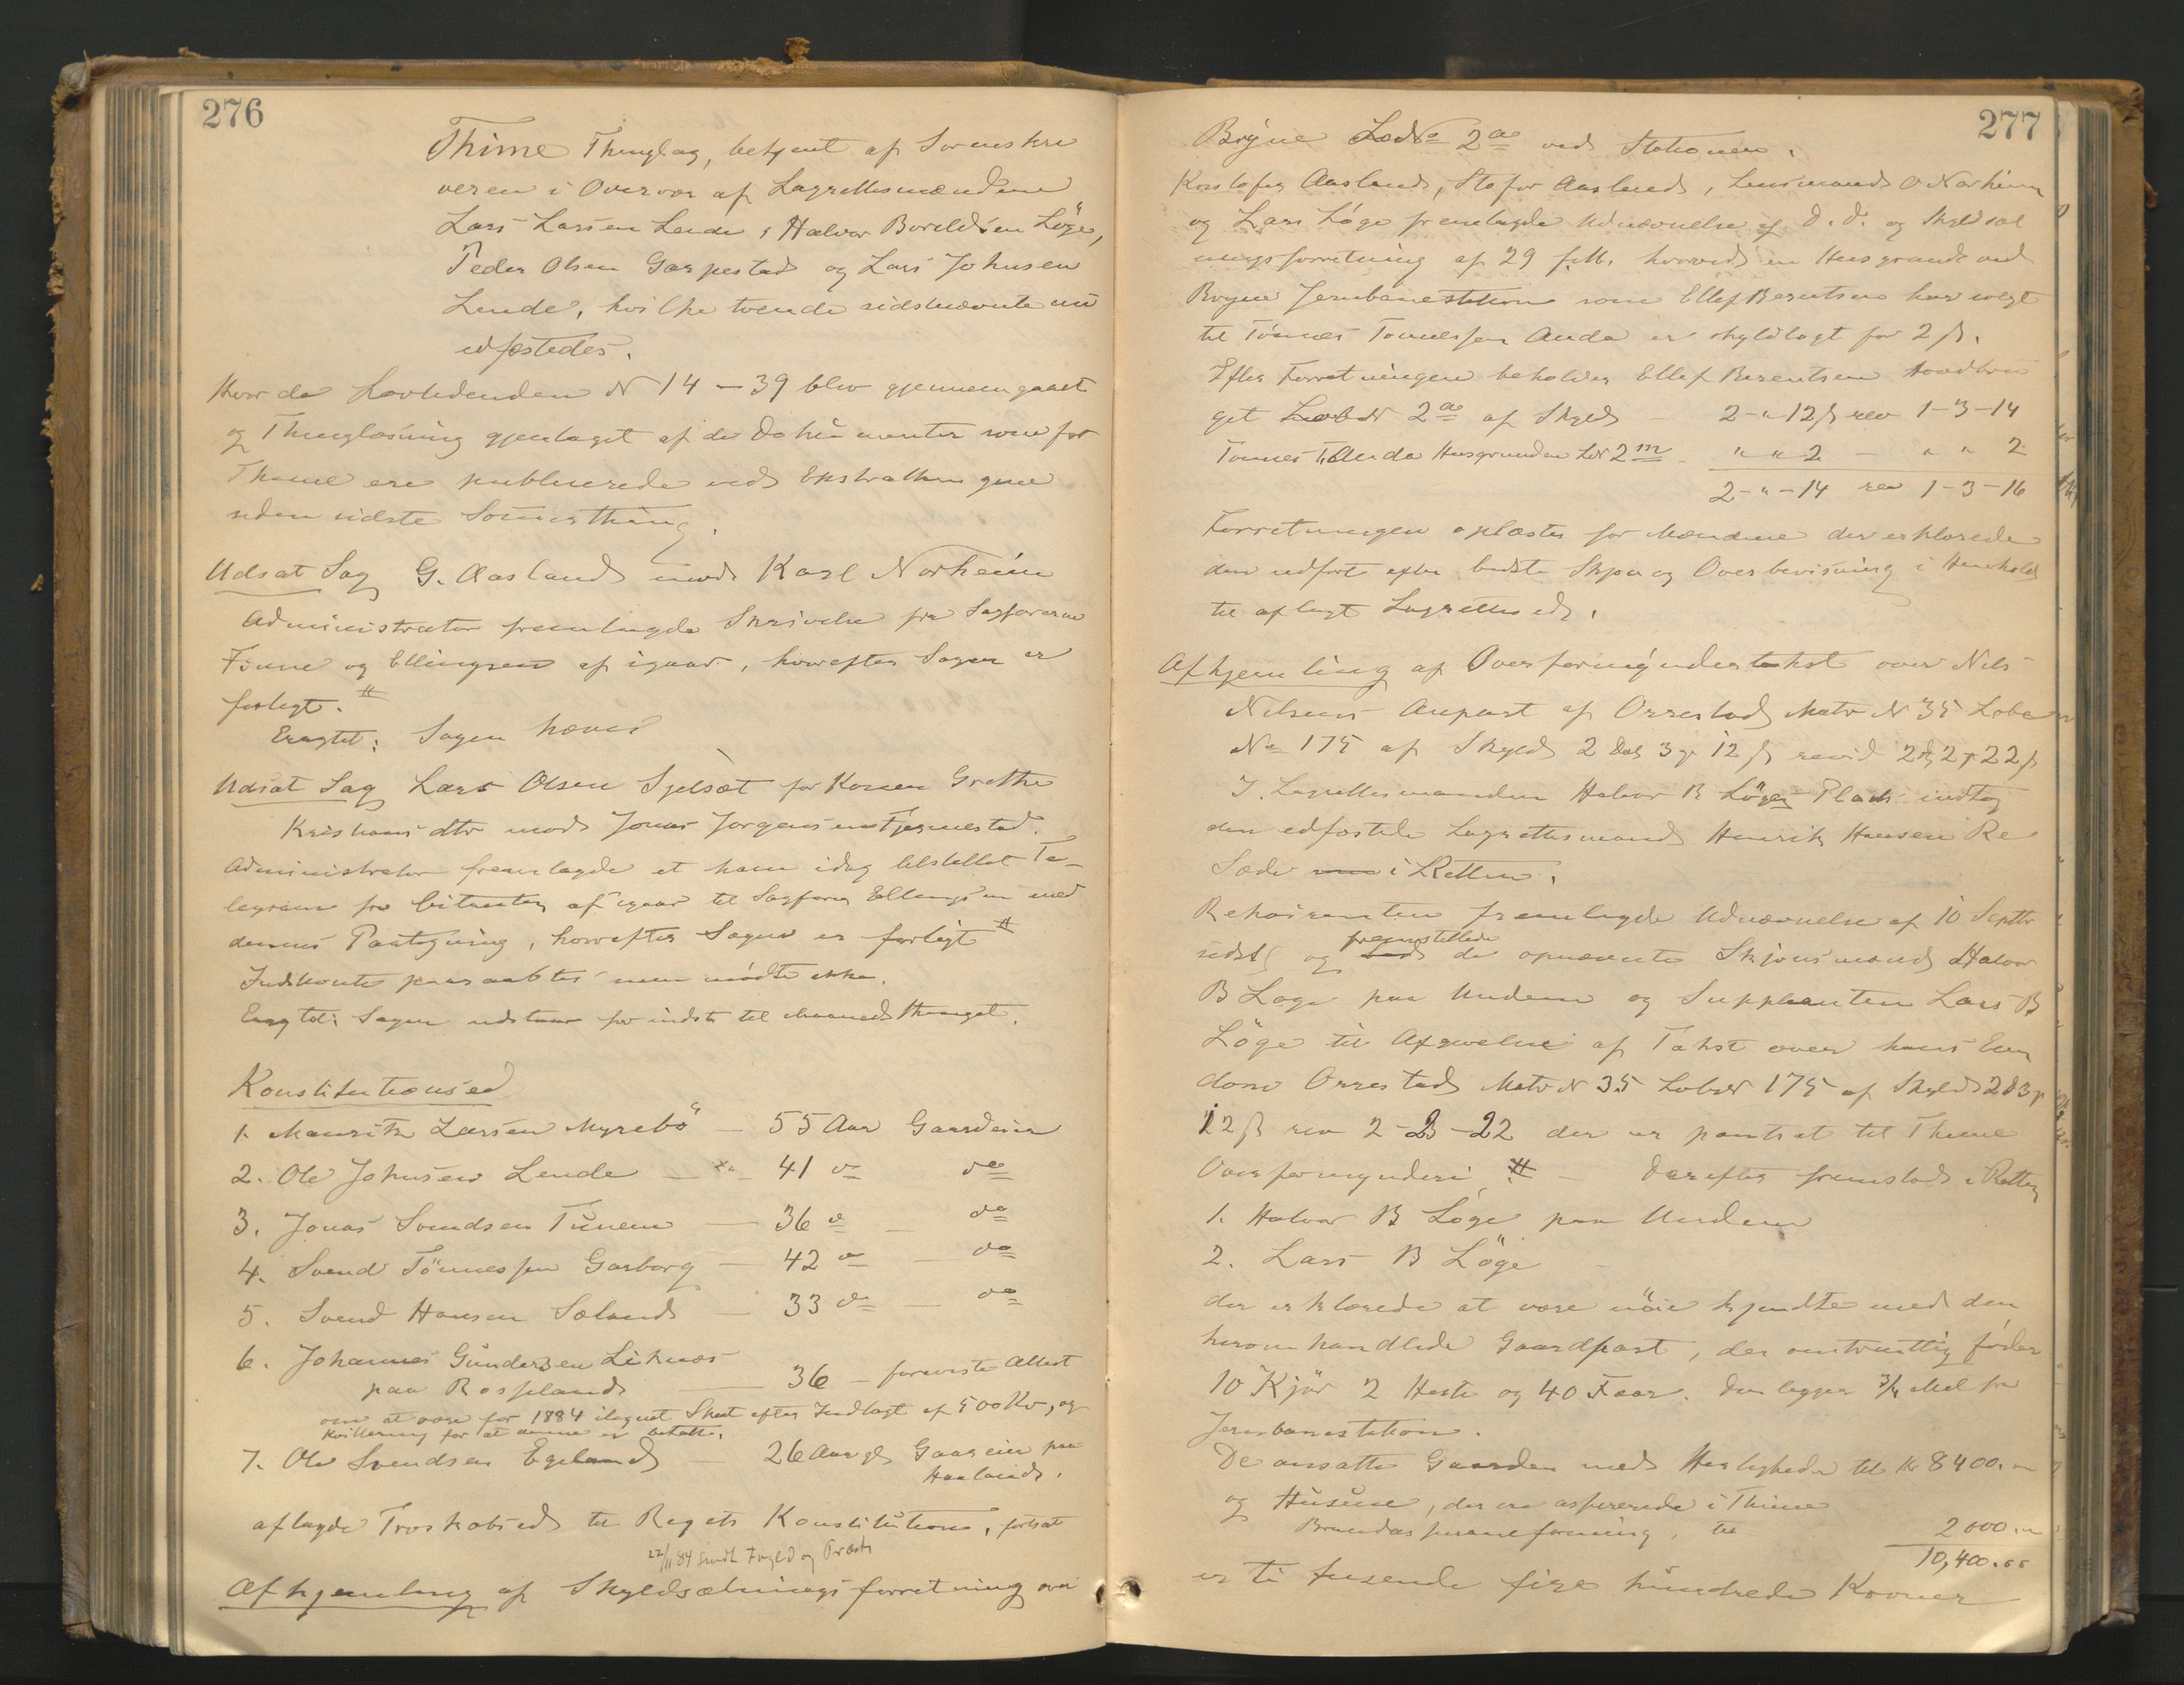 276
Thime Thinglag, betjent af Sorenskri
veren i Overvær af Lagrettesmændene
Lars Larsen Lende, Halvor Boreldsen Löge,
Peder Olsen Garpestad og Lars Johnsen
Lende, hvilke tvende sidstnævnte nu
edfæstedes.
Hvor da Lovtidenden N 14 - 39 blev gjennemgaaet
og Thinglæsning gjentaget af de Dokumenter som for
Thime ere publicerede ved Extrathingene
siden sidste Sommerthing.
Udsat Sag G. Aasland mod Karl Norheim
Administrator fremlagde Skrivelse fra Sagførerne
Finne og Ellingsen af igaar, hvorefter Sagen er
forligt. #
Eragtet: Sagen hæves
Udsat Sag Lars Olsen Sjelset for Konen Grethe
Kristians dtr mod Jonas Jørgensen Tjernestad.
Administrator fremlagde et ham idag tilstillet Te-
legram fra Citanten af igaar til Sagfører Ellingsen med
dennes Paategning, hvorefter Sagen er forligt #
Indstevnte paaraabtes men mødte ikke.
Eragtet: Sagen udstaar for indst. til Maanedsthinget.
Konstitutionsed
1. Mauritz Larsen Myrebö - 55 Aar Gaardeier
2. Ole Johnsen Lende - 41 do do
3. Jonas Svendsen Tunem - 36 do - do
4. Svend Tönnessen Garborg - 42 do - do
5. Svend Hansen Sæland - 33 do - do
6. Johannes Gundersen Liknæs
paa Rosseland - 36 - foreviste Attest
om at være for 1884 ilignet Skat efter Indtægt af 500 Kr, og
Kvittering for at denne er betalt.
7. Ole Svendsen Egeland - 26 Aar gl Gaardeier paa
Haaland.
aflagde Troskabsed til Rigets Konstitution, fortsat
22/11 84 sendt Foged og Præst
Afhjemling af Skyldsætningsforretning over
277
Bryne LadNo 2a ved Stationen.
Kristofer Aasland, Stefar Aasland, Lensmand O Norheim
og Lars Löge fremlagde Udnævnelse af D. D. og Skyldsæt
ningsforretning af 29 f.M. hvorved en Husgrund ved
Bryne Jernbanestation som Ellef Berentsen har solgt
til Tönnes Tönnessen Anda er skyldlagt for 2 ß.
Efter Forretningen beholder Ellef Berentsen Hovedbru
get LøbN 2a af Skyld 2 - " 12 ß rev 1-3-14
Tönnes T. Anda Husgrunden LN 2m - " " 2 - " " 2
2 - " - 14 rev 1-3-16
Forretningen oplæstes for Mændene der erklærede
den udført efter bedste Skjøn og Overbevisning i Henhold
til aflagt Lagrettesed.
Afhjemling af Overformyndertakst over Nils
Nilsens Anpart af Orrestad Matr N 35 Løbe
No 175 af Skyld 2 Dal 3 ₰ 12 ß revid 2 d 2 ₰ 22 ß
I Lagrettesmanden Halvor B Löges Plads indtog
den edfæstede Lagrettesmand Henrik Hansen Re
Sæde i Retten.
Rekvirenten fremlagde Udnævnelse af 10 Septbr
sidstl og fremstillede de opnævnte Skjønsmænd Halvor
B Löge paa Undem og Suppleanten Lars B
Löge til Afgivelse af Takst over hans Eien
dom Orrestad Matr N 35 LøbN 175 af Skyld 2 d 3 ₰
12 ß rev 2-2-22 der er pantsat til Thime
Overformynderi # - Derefter fremstod i Retten
1. Halvor B Löge paa Undem
2. Lars B Löge
der erklærede at være nöie kjendte med den
heromhandlede Gaardpart, der omtrentlig føder
10 Kjör 2 Heste og 40 Faar. Den ligger 3/4 Mil fra
Jernbanestation.
De ansatte Gaarden med Herligheder til Kr 8400. "
og Husene, der ere assurerede i Thime
Brandassuranceforening, til 2000. "
10,400.00
er ti tusende fire hundrede Kroner